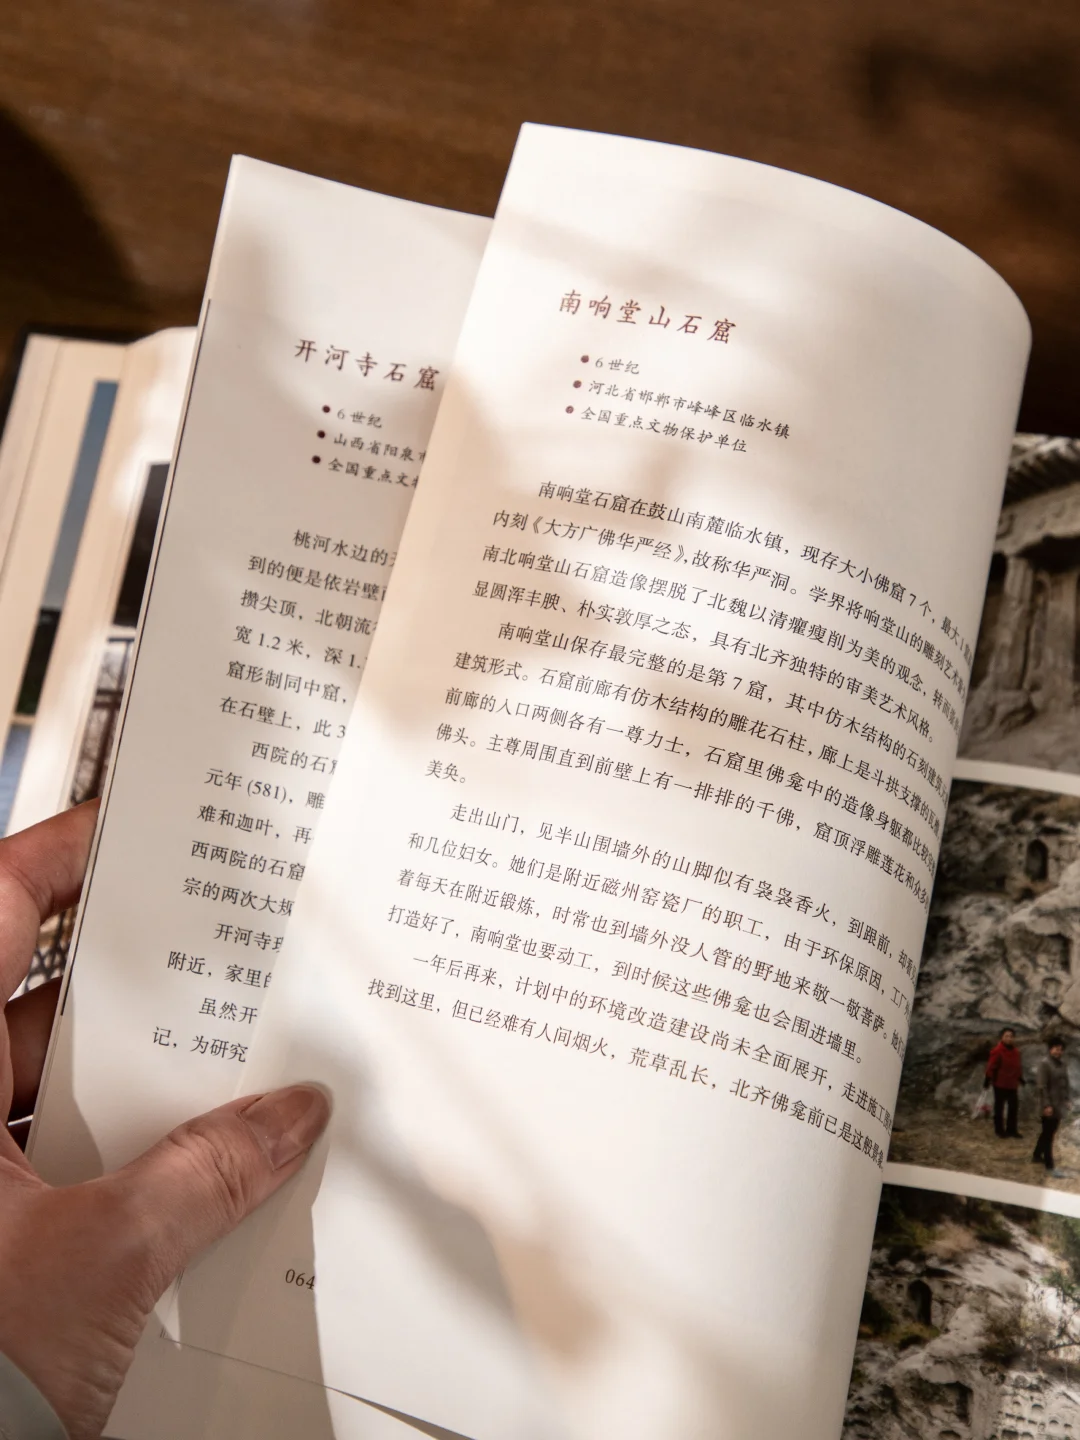 开河寺石窟
6世纪
山西省阳泉市
全国重点文物
桃河水边的
到的便是依岩壁
攒尖顶，北朝流
宽1.2米，深1.
窟形制同中窟，
在石壁上，此3
西院的石窟
元年(581)，雕
难和迦叶，再
西两院的石窟
宗的两次大规
开河寺
附近，家里的
虽然开
记，为研究
064
南响堂山石窟
6世纪
河北省邯郸市峰峰区临水镇
全国重点文物保护单位
南响堂石窟在鼓山南麓临水镇，现存大小佛窟7个，最大1窟
内刻《大方广佛华严经》，故称华严洞。学界将响堂山的雕刻艺术
南北响堂山石窟造像摆脱了北魏以清癯瘦削为美的观念，转而
显圆浑丰腴、朴实敦厚之态，具有北齐独特的审美艺术风格。
南响堂山保存最完整的是第7窟，其中仿木结构的石刻建筑
建筑形式。石窟前廊有仿木结构的雕花石柱，廊上是斗拱支撑的瓦
前廊的入口两侧各有一尊力士，石窟里佛龛中的造像身躯都比较完
佛头。主尊周围直到前壁上有一排排的千佛，窟顶浮雕莲花和众多
美奂。
走出山门，见半山围墙外的山脚似有袅袅香火，到跟前，却
和几位妇女。她们是附近磁州窑瓷厂的职工，由于环保原因，工厂
着每天在附近锻炼，时常也到墙外没人管的野地来敬一敬菩萨。她们
打造好了，南响堂也要动工，到时候这些佛龛也会围进墙里。
一年后再来，计划中的环境改造建设尚未全面展开，走进施工
找到这里，但已经难有人间烟火，荒草乱长，北齐佛龛前已是这般景象